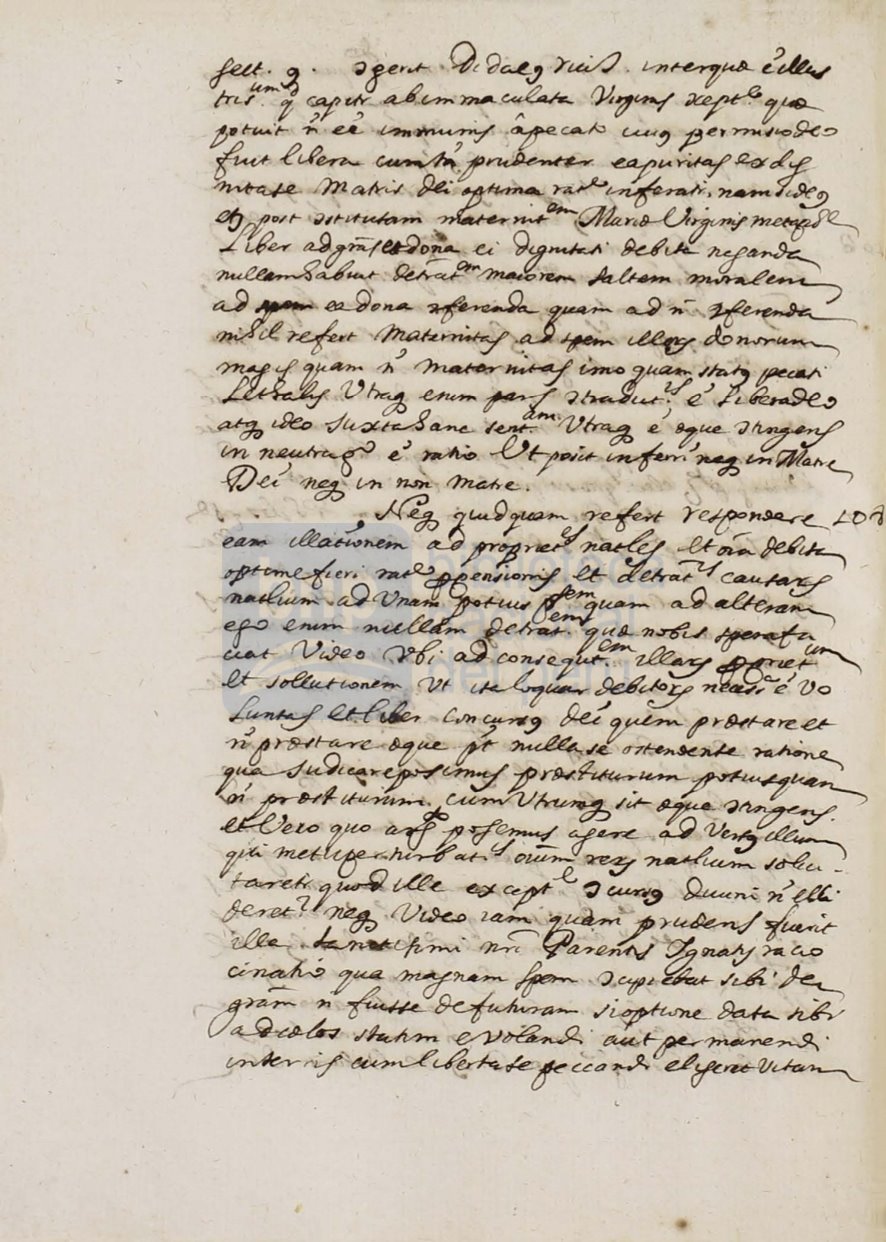 sect. 9. ɔgerit Didaeꝯ Ruis. interquæ ē illus
trisᵘᵐ qᵈ capitr ab immaculata Virginis ɔceptᵉ quæ
potuit n̄ eē immunis â pecato cuiꝯ permisio deo
fuit libera cum tn̄ prudenter ea puritas ex dig
nitate Matris dei optima ratᵉ inferatr. nam si deꝯ
etӡ post ɔstitutam maternitᵉᵐ Mariæ Virginis
Liber ad grām et dona ei dignitati debita neganda
nullam habuit detratᵉᵐ maiorem saltem moralem
ad ea dona ɔferenda quam ad n̄ ɔferenda
nihil refert Maternitas ad spem illorӡ donorum
magis quam n̄ maternitas imo quam statꝯ pecati
Lethalis Utraqӡ enim pars ɔtradictⁱˢ ē Libera deo
atqӡ ideo Juxta hanc sentᵃᵐ. Utraqӡ ē æque ɔtingens
in neutra ē ratio Ut posit inferri neqӡ in Matre
Dei neqӡ in non Matre.
Neqӡ quidquam refert respondere
eam illationem ad proprietᵉˢ natles et oīa debita
optime fieri ratᵉ ppensionis et detratⁱˢ causarӡ
natlium ad Unam potius pᵗᵉᵐ quam ad alteram
ego enim nullam detratᵉᵐ. quæ nobis spem fa
ciat Video Ubi ad consequtᵉᵐ illarӡ pprietᵘᵐ
et sollutionem Ut ita loquar debitorӡ necesrᵃ ē vo
Luntas et liber concursꝯ dei quem præstare et
n̄ præstare æque pt nulla se ostendente ratione
qua Judicare posimus præstiturum potius quam
n̄ præstiturum. cum Utrumqӡ sit æque ɔtingens.
et Vero quo posemus agere ad Versꝯ illum
qui met perturbatⁱˢ oīum rerӡ natlium
taretr quod ille exceptᵉ ɔcursꝯ divini n̄ elli
deretʳ neqӡ Video iam quam prudens fuerit
illa Sanctisimi nri Parentis Ignatij racio
cinatio qua magnam spem ɔcipiebat sibi dei
grām n̄ fuisse defuturam si optione data sibi
ad cœlos statim evolandi aut permanendi
in terris cum libertate peccandi eligeret vitam